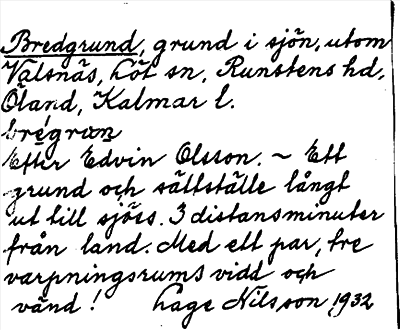 Bredgrund, grund i sjön, utom
Valsnäs, Löt sn, Runstens hd,
Öland, Kalmar l.
brégrƶn
Efter Edvin Olsson. ~ Ett
grund och sättställe långt
ut till sjöss. 3 distansminuter
från land. Med ett par, tre
varpningsrums vidd och
vänd! Lage Nilsson 1932